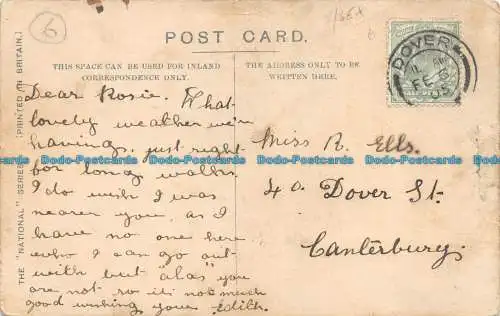 6
1/3EA
6
POST CARD.
THIS SPACE CAN BE USED FOR INLAND
CORRESPONDENCE ONLY.
THE ADDRESS ONLY TO BE
WRITTEN HERE.
DOVER
FE 6
05
HALFPENNY
THE "NATIONAL" SERIES
[PRINTED IN BRITAIN.]
Dear Rosie. What
lovely weather we're
having, just right
for long walks.
I do wish I was
nearer you, as I
have no one here
who I can go out
with but "alas" you
are not so it's not much
good wishing yours Edith.
Miss R. Ells.
40 Dover St.
Canterbury.
Dodo-Postcards Dodo-Postcards Dodo-Postcards Dodo-Postcards Dodo-Postcards